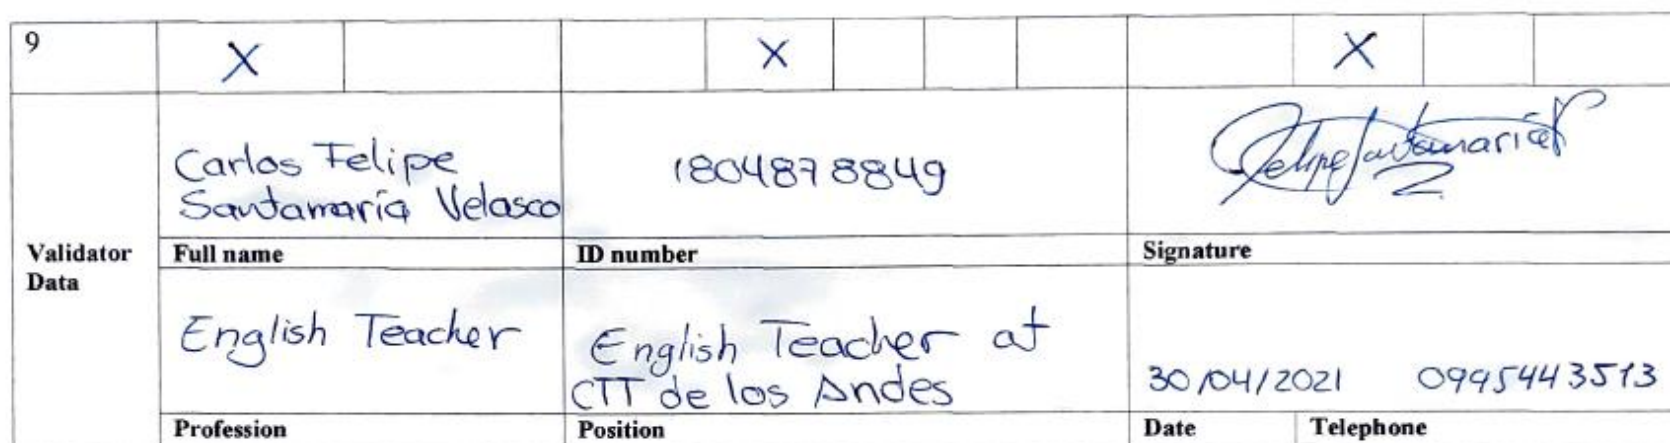 9 X X X
Carlos Felipe
Santamaría Velasco
1804878849
Felipe Santamaría
Validator
Data
Full name
ID number
Signature
English Teacher
English Teacher at
CTT de los Andes
30/04/2021
0995443513
Profession
Position
Date
Telephone